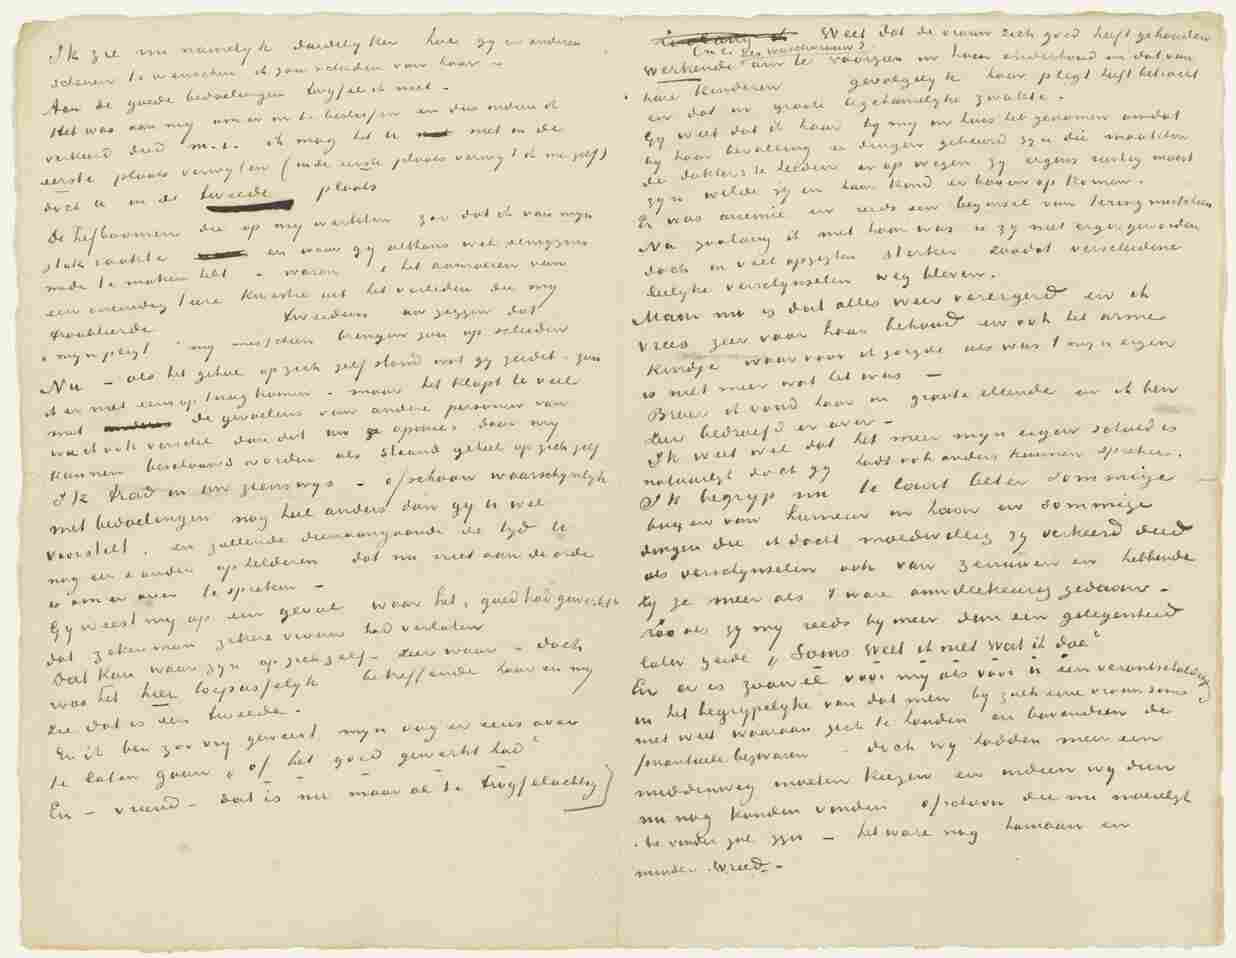 Ik zie nu namelyk duidelyker hoe gy en anderen
schenen te wenschen ik zou scheiden van haar.
Aan de goede bedoelingen twyfel ik niet.
Het was aan my om er in te beslissen en dus indien ik
verkeerd deed m.i. ik mag het U niet in de
eerste plaats verwyten (in de eerste plaats verwyt ik me zelf)
doch U in de tweede plaats
De hefboomen die op my werkten zoo dat ik van myn
stuk raakte en waar gy althans wel eenigzins
mede te maken hebt - waren 1 het aanroeren van
een oneindig teere kwestie uit het verleden die my
troubleerde tweedens uw zeggen dat
"myn pligt" my misschien brengen zou op scheiden
Nu - als het geheel op zich zelf stond wat gy zeidet - zou
ik er niet eens op terug komen - maar het klopt te veel
met de gevoelens van andere personen van
wie ik ook verschil dan dat uw opinies door my
kunnen beschouwd worden als staand geheel op zich zelf
Ik trad in uw zienswys - ofschoon waarschynlyk
met bedoelingen nog heel anders dan gy U wel
voorstelt. en zullende dienaangaande de tyd te
nog een & ander ophelderen dat nu niet aan de orde
is om er over te spreken -
Gy weest my op een geval waar het, goed had gewerkt
dat zeker man zekere vrouw had verlaten
Dat kan waar zyn op zich zelf - zeer waar - doch
was het hier toepasselyk betreffende haar en my
zie dat is een tweede.
En ik ben zoo vry geweest, myn oog er eens over
te laten gaan „of het goed gewerkt had"
En - vriend - dat is nu maar al te twyfelachtig
Weet dat de vrouw zich goed heeft gehouden
(n.l. als waschvrouw)
Werkende om te voorzien in haar onderhoud en dat van
hare kinderen gevolgelyk haar pligt heeft betracht
en dat in groote ligchamelyke zwakte.
Gy weet dat ik haar by my in huis heb genomen omdat
by haar bevalling er dingen gebeurd zyn die maakten
de dokters te Leiden er op wezen zy ergens rustig moest
zyn wilde zy en haar kind er bovenop komen.
Er was anemie en reeds een beginsel van tering misschien
Nu zoolang ik met haar was is zy niet erger geworden
doch in veel opzigten sterker zoodat verscheidene
leelyke verschynselen weg bleven.
Maar nu is dat alles weer verergerd en ik
vrees zeer voor haar behoud en ook het arme
kindje waarvoor ik zorgde als was 't myn eigen
is niet meer wat het was -
Broer ik vond haar in groote ellende en ik ben
zeer bedroefd er over -
Ik weet wel dat het meer myn eigen schuld is
natuurlyk doch gy hadt ook anders kunnen spreken.
Ik begryp nu te laat beter sommige
buyen van humeur in haar en sommige
dingen die ik dacht moedwillig zy verkeerd deed
als verschynselen ook van zenuwen en hebbende
zy ze meer als 't ware onwillekeurig gedaan -
zoo als zy my reeds by meer dan een gelegenheid
later zeide „Soms weet ik niet wat ik doe"
En er is zoowel voor my als voor U een verontschuldiging
in het begrypelyke van dat men by zoch eene vrouw soms
niet weet waaraan zich te houden en bovendien de
financieele bezwaren - doch wy hadden meer een
middenweg moeten kiezen en indien wy dien
nu nog konden vinden ofschoon die nu moeielyk
te vinden zal zyn - het ware nog humaan en
minder wreed. -